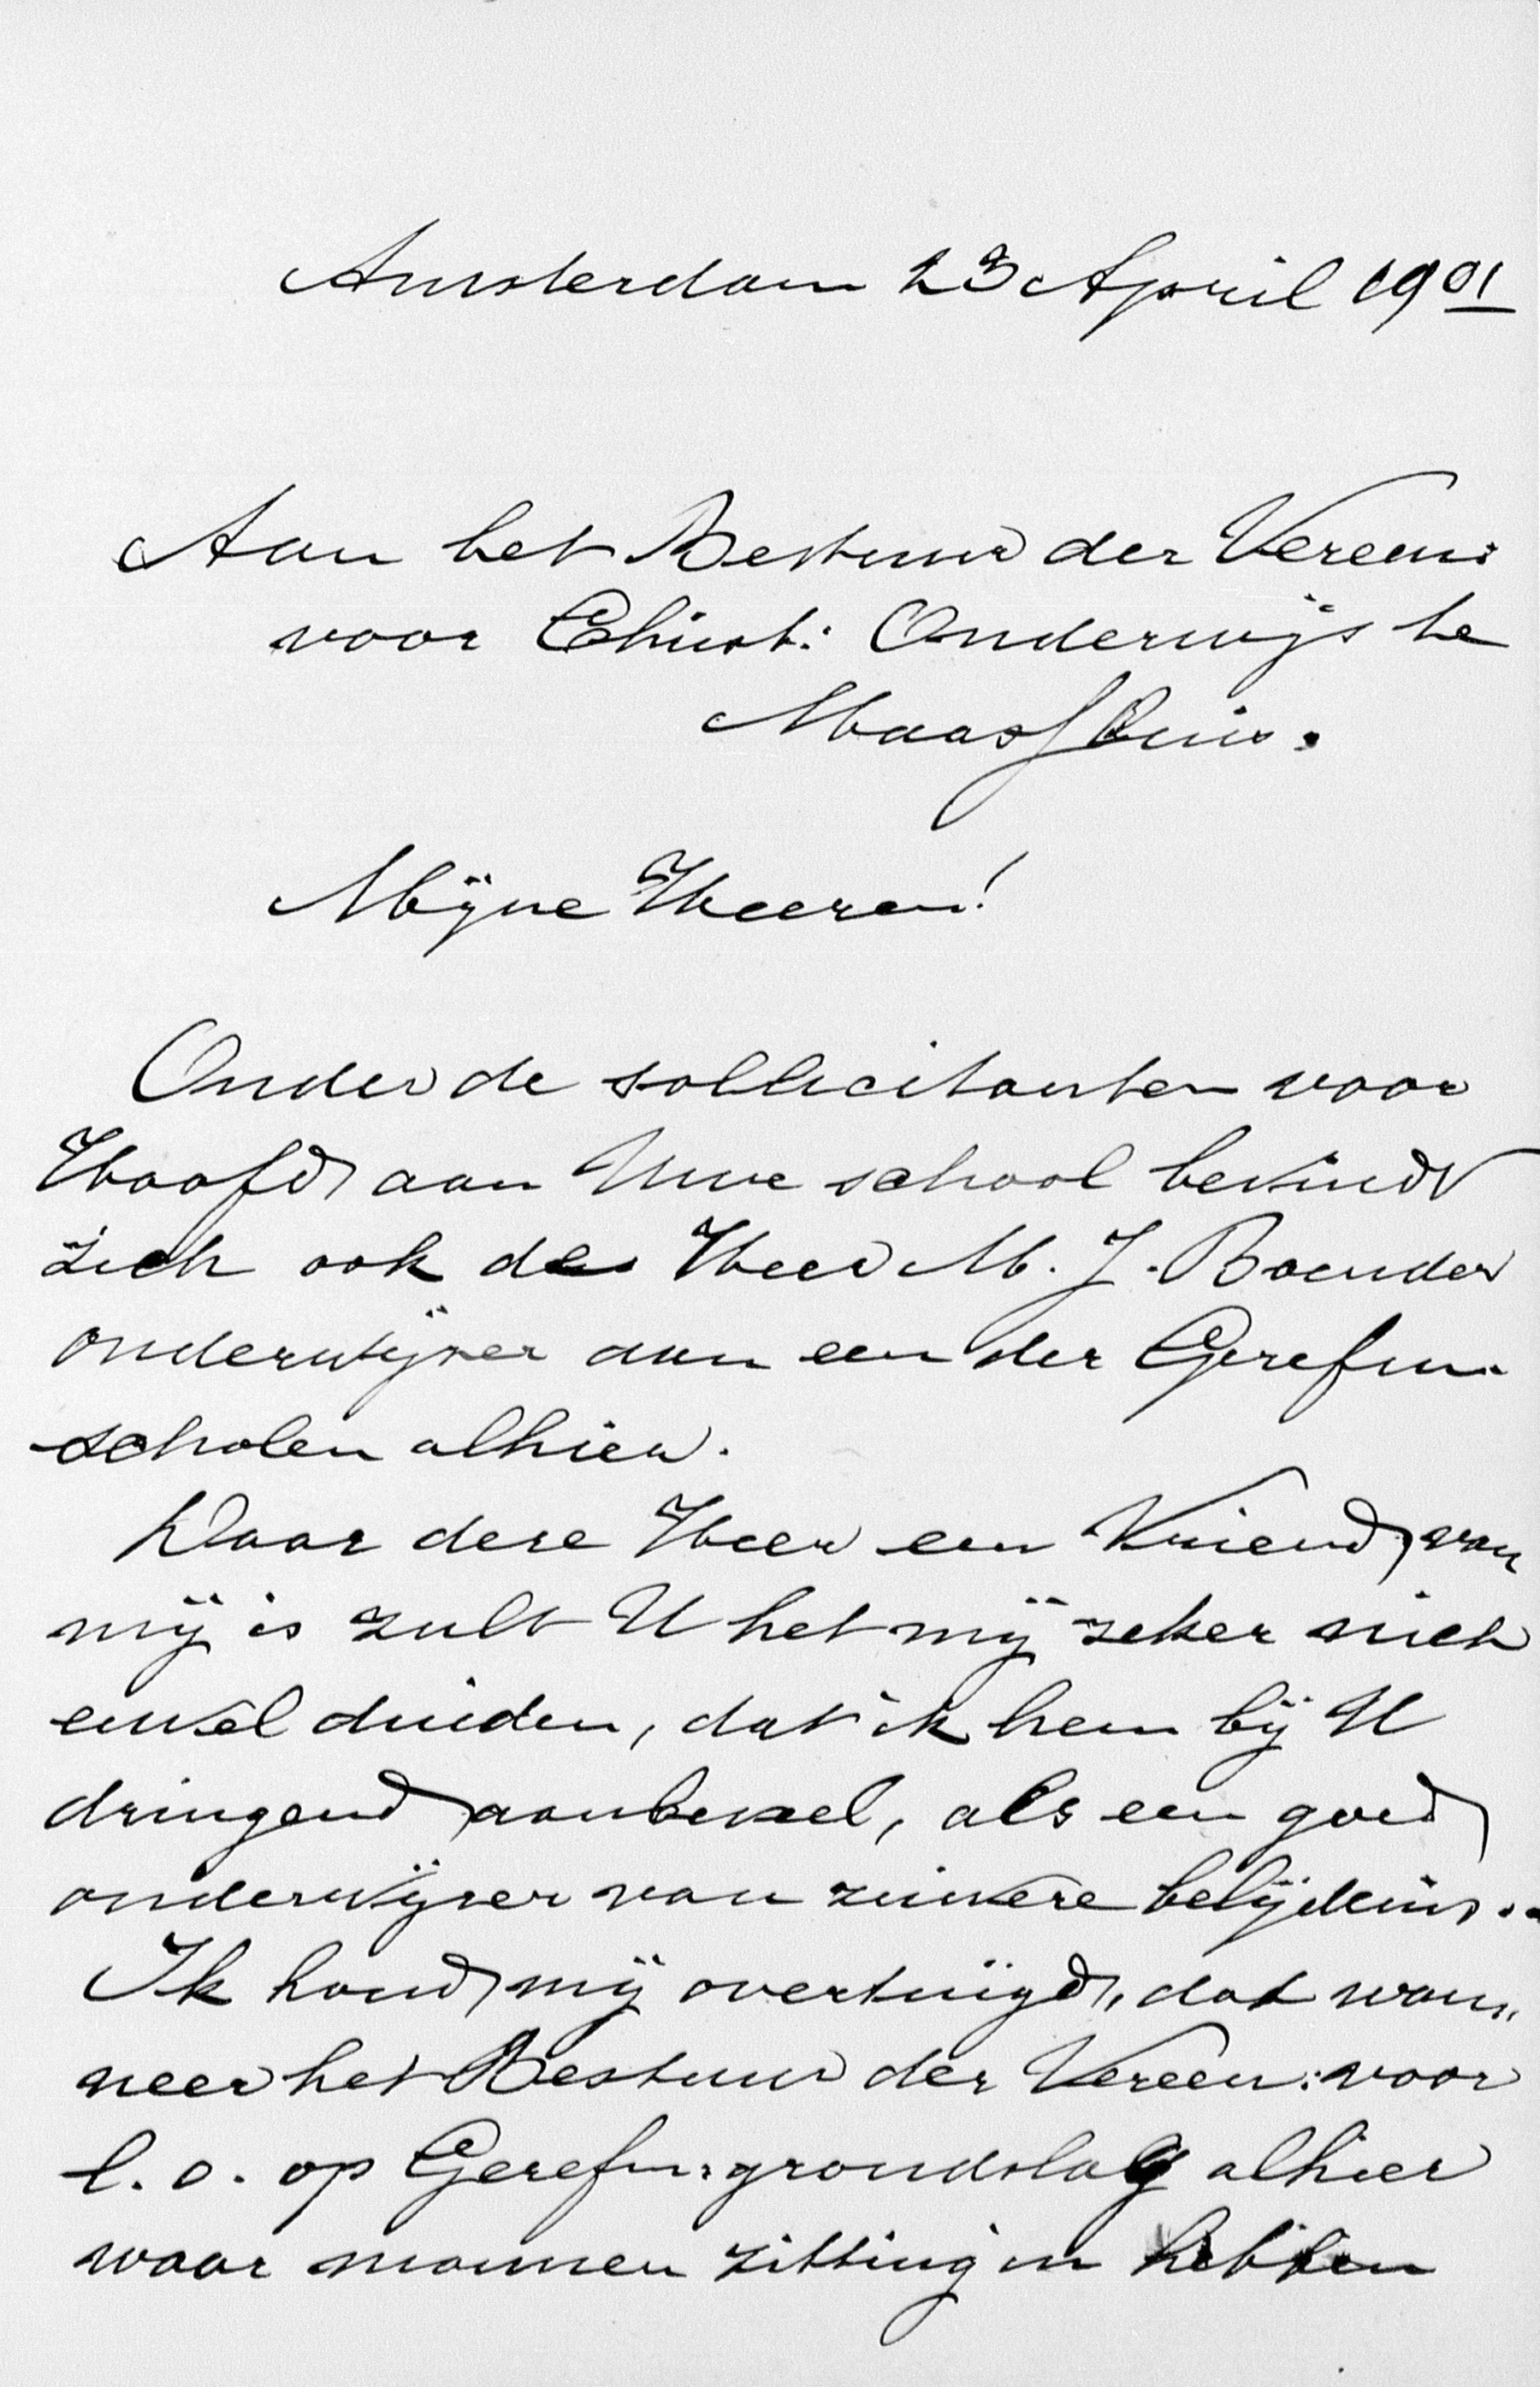 Amsterdam 23 April 1901
Aan het Bestuur der Vereen:
voor Christ: Onderwijs te
Maassluis.
Mijne Heeren!
Onder de sollicitanten voor
Hoofd aan Uwe school bevindt
zich ook de Heer M. J. Boender
onderwijzer aan een der Gerefm.
scholen alhier.
Daar deze Heer een Vriend van
mij is zult U het mij zeker niet
euvel duiden, dat ik hem bij U
dringend aanbeveel, als een goed
onderwijzer van zuivere belijdenis.
Ik houd mij overtuigd, dat wan„
neer het Bestuur der Vereen: voor
l. o. op Gerefm: grondslag alhier
waar mannen zitting in hebben